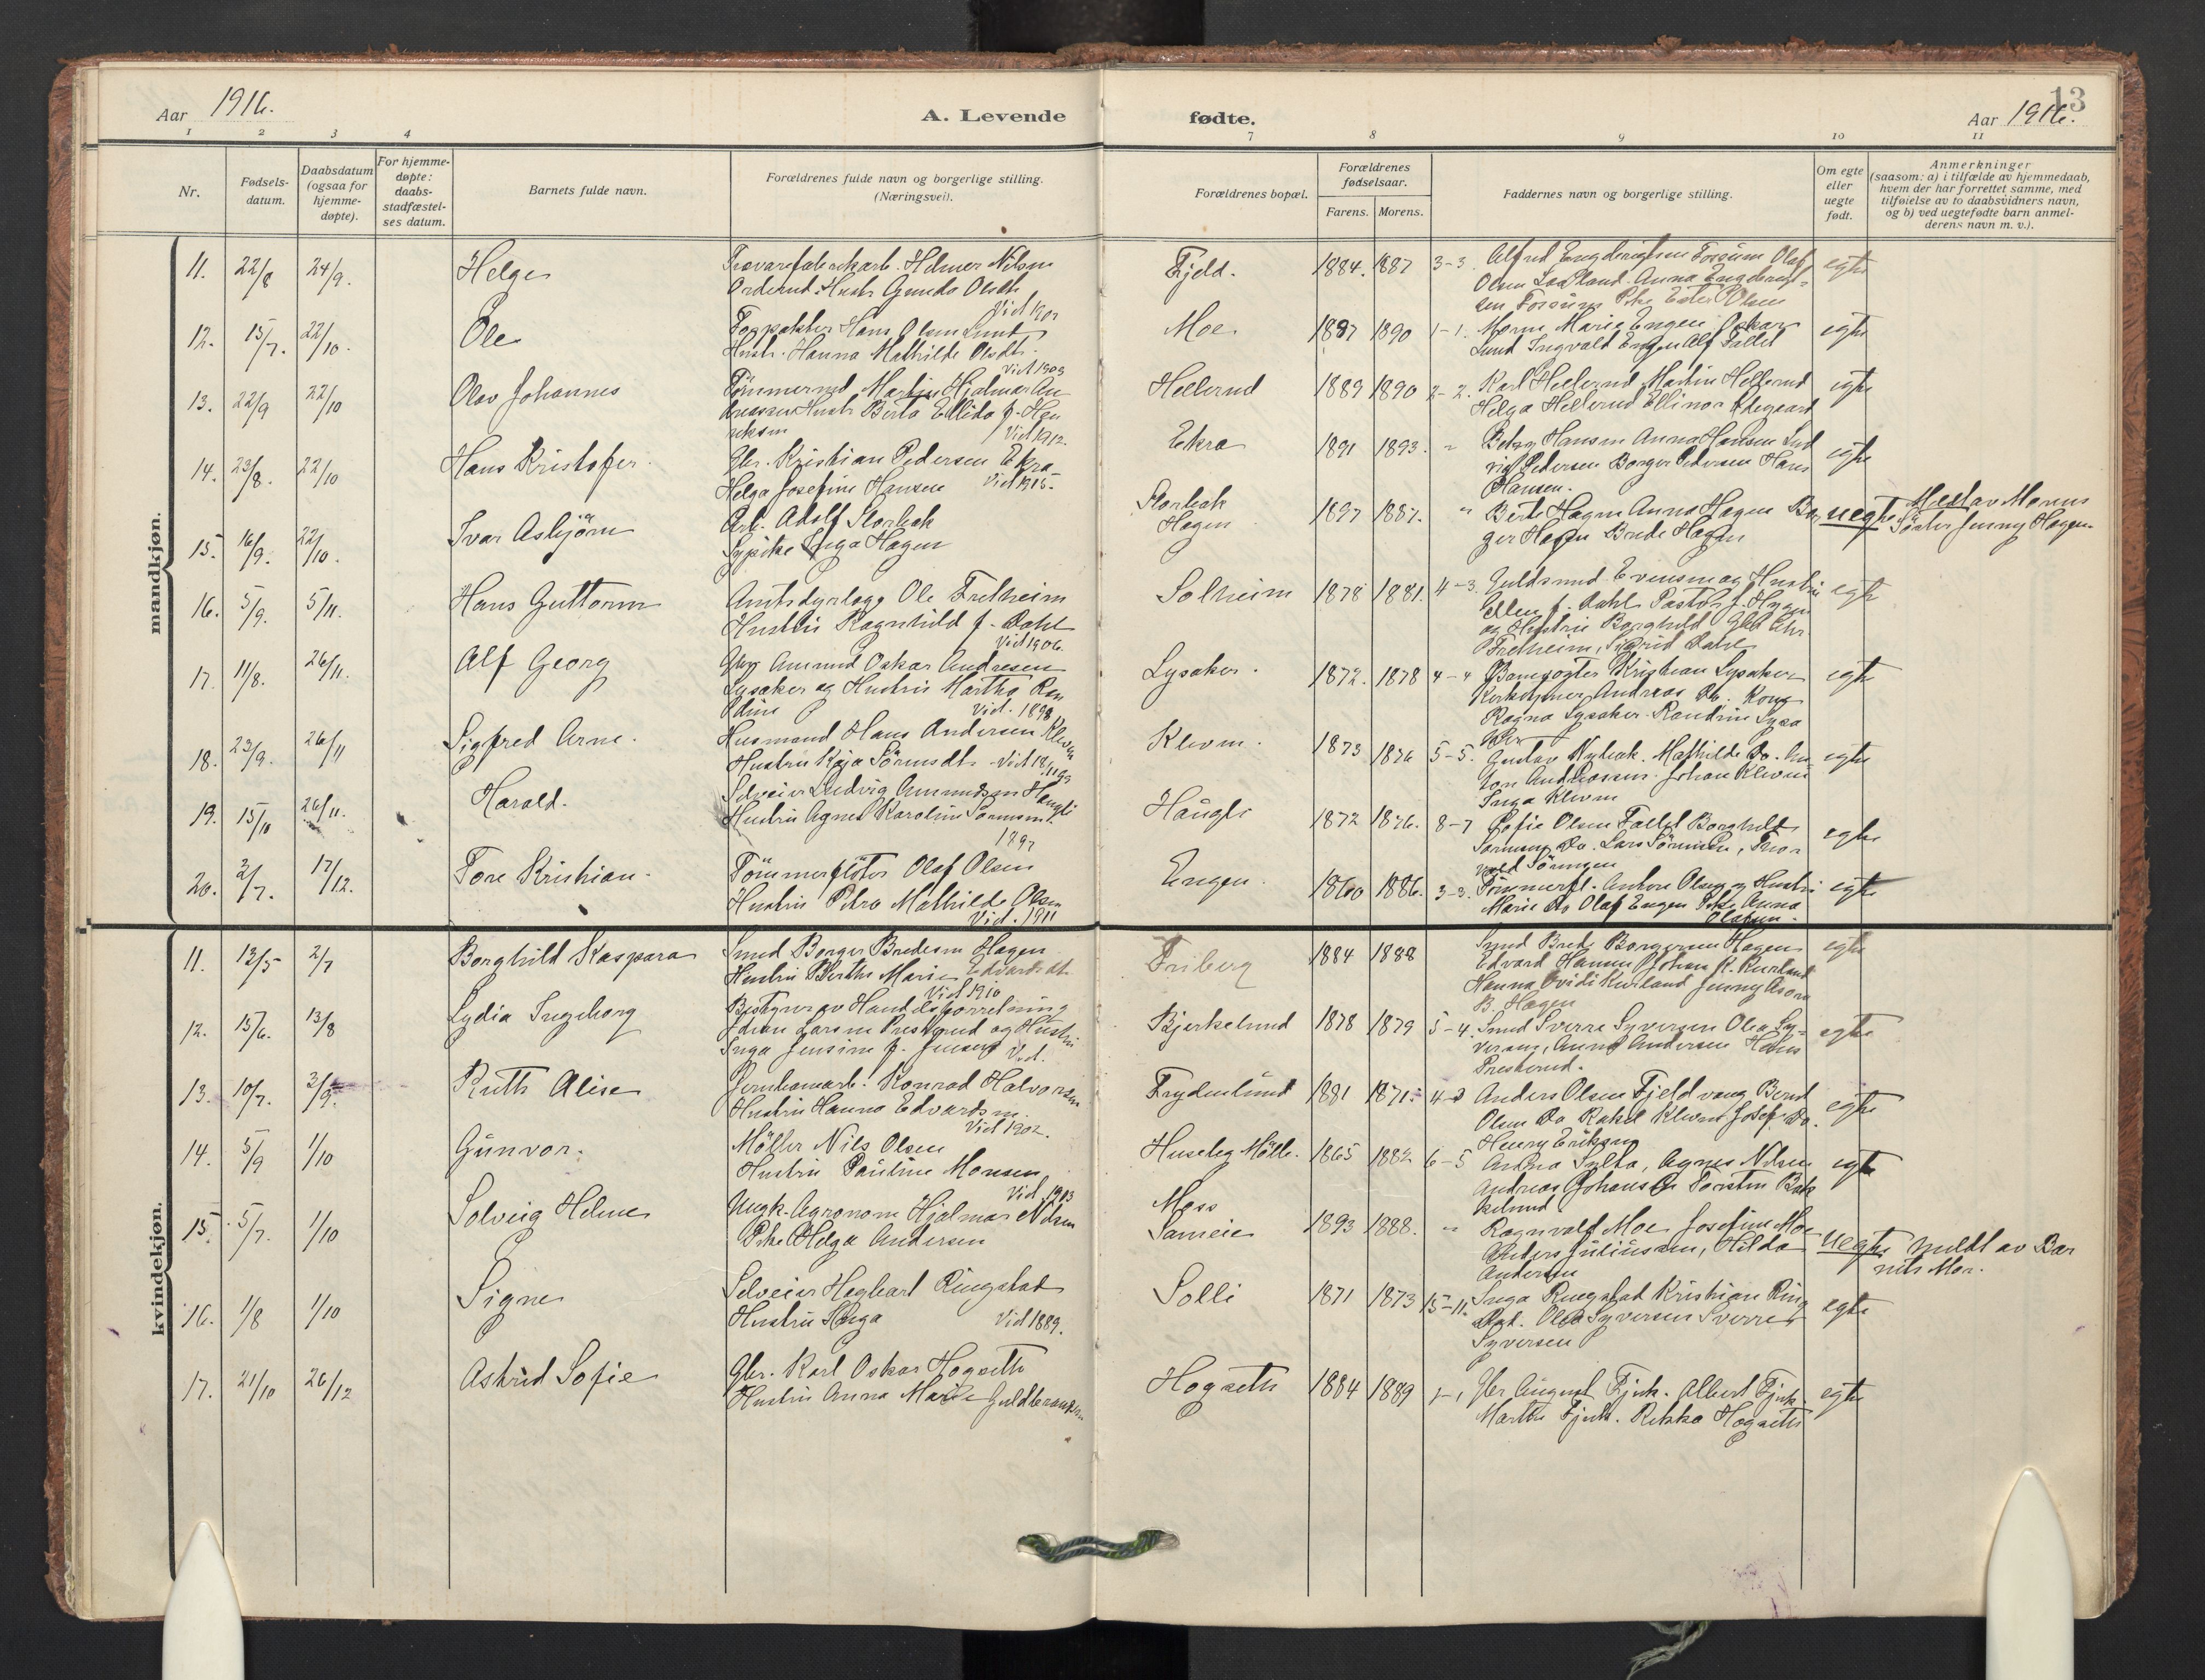 Aar 1916.
A. Levende
fødte.
13
Aar 1916.
1 2 3 4
7 8 9 10 11
Nr.
Fødsels-
datum.
Daabsdatum
(ogsaa for
hjemme-
døpte).
For hjemme-
døpte:
daabs-
stadfæstel-
ses datum.
Barnets fulde navn.
Forældrenes fulde navn og borgerlige stilling.
(Næringsvei).
Forældrenes bopæl.
Forældrenes
fødselsaar.
Farens. Morens.
Faddernes navn og borgerlige stilling.
Om egte
eller
uegte
født.
Anmerkninger
(saasom: a) i tilfælde av hjemmedaab,
hvem der har forrettet samme, med
tilføielse av to daabsvidners navn,
og b) ved uegtefødte barn anmel-
derens navn m. v.).
mandkjøn.
11. 22/8 24/9. Helge
Helmer Nilsen
Orderud. Hustr Gunda Olsen
Fjeld. 1884. 1887 3-3.
Alfred Engebrigtsen Fossum Olaf
Olsen Anna Engebrigt-
sen Fossum Pike Ester Olsen
egte
12. 15/7. 22/10. Ole
Hans Olsen Lund
Hustr. Hanna Mathilde Olsdtr.
Moe 1887 1890 1-1.
Morm Marie Engen Oskar
Lund Ingvald Engen Alf Fallet
egte
13. 22/9 22/10 Olav Johannes
Tömmermd Martin Hjalmar An
dreassen Hustr Berta Ellida f. Hen
riksen Viet 1912.
Hellerud 1889 1890 2-2.
Karl Hellerud Martin Hellerud
Helga Hellerud Ellinor Ødegaard
egte
14. 23/8. 22/10 Hans Kristofer.
Gbr. Kristian Pedersen Ekra
Helga Josefine Hansen Viet 1915.
Ekra 1891 1893. "
Betzy Hansen Anna Hansen Lud
vig Pedersen Borger Pedersen Hans
Hansen.
egte
15. 16/9. 22/10. Ivar Asbjörn
Arb. Adolf Storbæk
Sypike Inga Hagen
Storbæk
Hagen 1897 1887. "
Berte Hagen Anna Hagen Bor
ger Hagen Brede Hagen
uegte
Meldt av Morens
Söster Jenny Hagen.
16. 5/9. 5/11. Hans Guttorm
Amtsdyrlæge Ole Fretheim
Hustru Ragnhild f. Dahl
Viet 1906.
Solheim 1878 1881. 4-3.
Guldsmed Evensen og Hustru
Ellen f. Dahl Pastor J. Hygen
og Hustru Borghild Gbr Chr.
Fretheim, Sigrid Dahl
egte
17. 11/8. 26/11. Alf Georg
Gbr Amund Oskar Andresen
Lysaker og Hustru Martha Ran
dine Viet. 1898
Lysaker. 1872. 1878 4-4
Kristian Lysaker
Andreas
Ragna Lysaker. Randine Lysa
ker
egte
18. 23/9. 26/11 Sigfred Arne.
Husmand Hans Andersen Kleven
Hustru Kaja Sörensdtr.
Kleven. 1873 1876 5-5.
Gustav Nybæk. Mathilde Do. An
ton Andreassen. Johan Kleven
Inga Kleven
egte
19. 15/10 26/11. Harald.
Selveier Ludvig Amundsen Haugli
Hustru Agnes Karoline Sörensen.
1897
Haugli 1872 1876. 8-7
Sofie Olsen Fallet Borghild
Sörensen Do. Lars Sörensen, Thor
vald Sörensen
egte
20. 2/7. 17/12. Tore Kristian.
Tömmerflöter Olaf Olsen
Hustru Petra Mathilde Olsen
Viet. 1911
Engen. 1860 1886. 3-3.
Tömmerfl. Anton Olsen og Hustru
Marie Do Olaf Engen Pike Anna
Olafsen.
egte
kvindekjøn.
11. 13/5 2/7 Borghild Kaspara
Smed Borger Bredesen Hagen
Hustru Berthe Marie Edvardsdt.
Viet 1910
Friberg 1884 1888
Smed Brede Borgersen Hagen
Edvard Hansen Johan K. Kurland
Hanna Kurland Jenny
B. Hagen
egte
12. 15/6. 13/8 Lydia Ingeborg
Bestyrer av Handelsforretning
Edvin Larsen Presterud og Hustru
Inga Jensine f. Jensen Viet.
Bjerkelund 1878 1879 5-4.
Smed Sverre Syversen Olea Sy-
versen, Anna Andersen Hans
Presterud.
egte
13. 10/7. 3/9. Ruth Alise
Konrad Halvorsen
Hustru Hanna Edvardsen.
Viet 1902.
Frydenlund 1881 1871
Anders Olsen Fjeldvang Bernt
Olsen Do Rakel Kleven Josef Do.
Henry Eriksen
egte
14. 5/9 1/10 Gunvor.
Möller Nils Olsen
Hustru Pauline Monsen
Viet 1903
Huseby Mölle. 1865 1882 6-5
Agnes Nilsen
Andreas Johansen Torsten Bak
kelund
egte
15. 5/7. 1/10 Solveig Helene
Ungk. Agronom Hjalmar Nilsen
Pike Helga Andersen
Moss
Sameie 1893 1888. "
Ragnvald Moe Josefine Moe
Anders Juliussen, Hilda
Andersen
uegte meldt av Bar
nets Mor.
16. 1/8 1/10 Signe
Selveier Hagbart Ringstad
Hustru Helga Viet 1889.
Solli 1871 1873 15-11.
Inga Ringstad Kristian Ring
stad. Olea Syversen Sverre
Syversen
egte
17. 21/10 26/12 Astrid Sofie
Gbr. Karl Oskar Hogseth
Hustru Anna Marie Guldbrandsen
Hogseth 1884 1889 1-1
Gbr August Fjuk. Albert Fjuk
Marthe Fjuk. Rikka Hogseth
egte